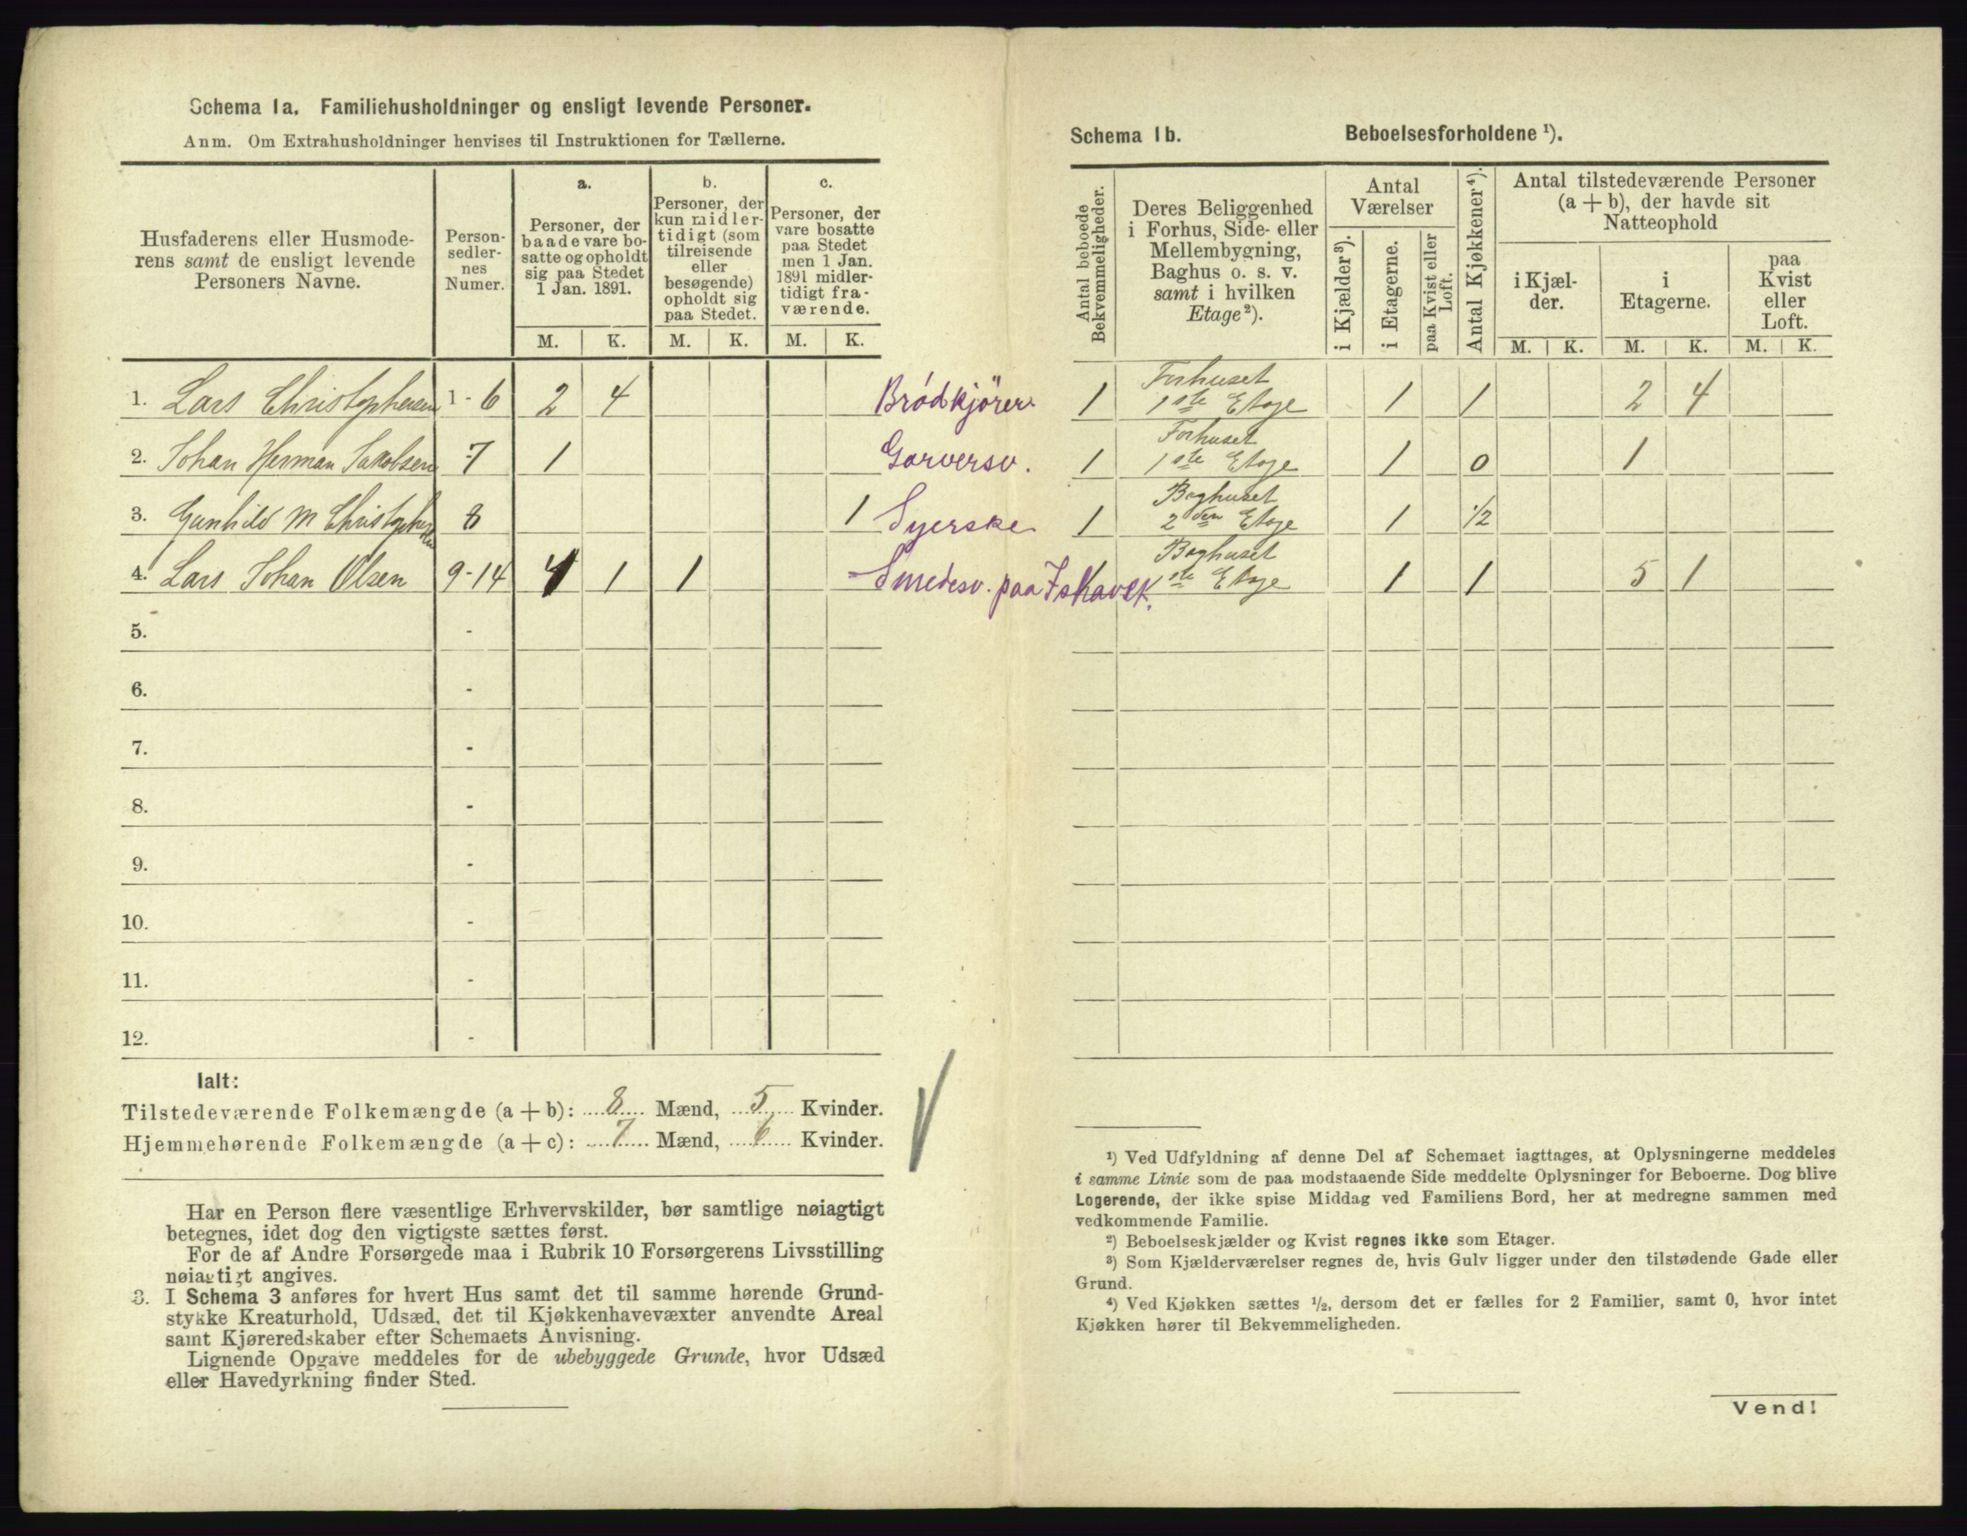 Schema 1a. Familiehusholdninger og ensligt levende Personer.
Anm. Om Extrahusholdninger henvises til Instruktionen for Tællerne.
Husfaderens eller Husmode-
rens samt de ensligt levende
Personers Navne.
Person-
sedler-
nes
Numer.
a.
Personer, der
baade vare bo-
satte og opholdt
sig paa Stedet
1 Jan. 1891.
b.
Personer, der
kun midler-
tidigt (som
tilreisende
eller
besøgende)
opholdt sig
paa Stedet.
c.
Personer, der
vare bosatte
paa Stedet
men 1 Jan.
1891 midler-
tidigt fra-
værende.
M. K. M. K. M. K.
1. Lars Christophersen 1-6 2 4 Brödkjörer
2. Johan Herman Jakobsen 7 1 Garversv.
3. Gunhild M Christophersen 8 1 Syerske
4. Lars Johan Olsen 9-14 4 1 1 Smedesv. paa Jskavlk.
5. -
6. -
7. -
8. -
9. -
10. -
11. -
12. -
Ialt:
Tilstedeværende Folkemængde (a + b): 8 Mænd, 5 Kvinder.
Hjemmehørende Folkemængde (a + c): 7 Mænd, 6 Kvinder.
Har en Person flere væsentlige Erhvervskilder, bør samtlige nøiagtigt
betegnes, idet dog den vigtigste sættes først.
For de af Andre Forsørgede maa i Rubrik 10 Forsørgerens Livsstilling
nøiagtigt angives.
3. I Schema 3 anføres for hvert Hus samt det til samme hørende Grund-
stykke Kreaturhold, Udsæd, det til Kjøkkenhavevæxter anvendte Areal
samt Kjøreredskaber efter Schemaets Anvisning.
Lignende Opgave meddeles for de ubebyggede Grunde, hvor Udsæd
eller Havedyrkning finder Sted.
Schema 1b. Beboelsesforholdene ¹).
Antal beboede
Bekvemmeligheder.
Deres Beliggenhed
i Forhus, Side- eller
Mellembygning,
Baghus o. s. v.
samt i hvilken
Etage²).
Antal
Værelser
i Kjælder³).
i Etagerne.
paa Kvist eller
Loft.
Antal Kjøkkener⁴).
Antal tilstedeværende Personer
(a + b), der havde sit
Natteophold
i Kjæl-
der.
i
Etagerne.
paa
Kvist
eller
Loft.
M. K. M. K. M. K.
1 Forhuset
1ste Etage 1 1 2 4
1 Forhuset
1ste Etage 1 0 1
1 Baghuset
2den Etage 1 1/2
Baghuset
1ste Etage 1 1 5 1
¹) Ved Udfyldning af denne Del af Schemaet iagttages, at Oplysningerne meddeles
i samme Linie som de paa modstaaende Side meddelte Oplysninger for Beboerne. Dog blive
Logerende, der ikke spise Middag ved Familiens Bord, her at medregne sammen med
vedkommende Familie.
²) Beboelseskjælder og Kvist regnes ikke som Etager.
³) Som Kjælderværelser regnes de, hvis Gulv ligger under den tilstødende Gade eller
Grund.
⁴) Ved Kjøkken sættes ½, dersom det er fælles for 2 Familier, samt 0, hvor intet
Kjøkken hører til Bekvemmeligheden.
Vend!